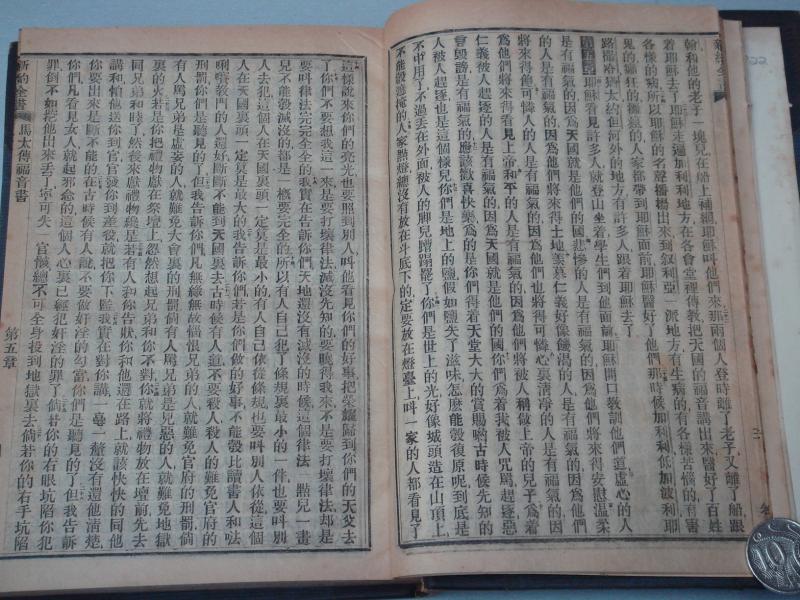 翰和他的老子一塊兒在船上補網耶穌叫他們來那兩個人登時離了老子又離了船跟
着耶穌去了耶穌走遍加利利地方在各會堂裡傳教把天國的福音講出來醫好了百姓
各樣的病所以耶穌的名聲播揚出來到叙利亞一派地方有生病的有各樣苦惱的有害
鬼的癲狂的人家都帶到耶穌面前耶穌醫好了他們那時候加利利低加波利耶
路撒冷猶太約但河外的地方有許多人跟着耶穌去了
第五章 耶穌看見許多人就登山坐着學生們到他面前耶穌開口教訓他們道虛心的人
是有福氣的因爲天國就是他們的國悲慘的人是有福氣的因爲他們將來得安慰溫柔
的人是有福氣的因爲他們將來得土地羨慕仁義好像饑渴的人是有福氣的因爲他們
將來得可憐人的人是有福氣的因爲他們也將得可憐心裏清淨的人是有福氣的因
爲他們將來得看見上帝和平的人是有福氣的因爲他們將來被人稱做上帝的兒子爲着
仁義被人趕逐的人是有福氣的因爲天國就是他們的國你們爲着我被人咒罵趕逐惡
會毀謗是有福氣的應該歡喜快樂爲的是你們得着天堂大大的賞賜喲古時候先知的
仁義被人趕逐也是這個樣兒你們是地上的鹽假如鹽失了滋味怎麽能彀復原呢到底是
不中用了不過丟在外面被人的脚兒蹧蹋罷了你們是世上的光好像城頭造在山頂上
不能彀遮掩的人家點燈總沒有放在斗底下的一定要放在燈臺上叫一家的人都看見了
這樣說來你們的亮光也要照到別人叫他看見你們的好事把榮耀歸到你們的天父去
了你們不要想我這一來是要打壞律法滅沒先知的要曉得我來不是要打壞律法却是
要叫律法完完全全的我實在告訴你們天地還沒有滅沒的時候這個律法一點兒一畫
兒不能彀滅沒的都是一概要完全的所以有人自己犯了條規裏最小的一件也要叫別
人去犯這個人在天國裏頭一定算是最小的有人自己依從條規也要叫別人依從這個
人在天國裏頭一定算是最大的我告訴你們若是你們做的好事不能彀比讀書人和𠵽
唎㘔教門的人還好斷斷不能到天國裏去古時候有人說不要殺人殺人的難免官府的
刑罰你們是聽見的了我告訴你們凡無緣無故惱恨兄弟的人就難免官府的刑罰倘
有人罵兄弟是虛妄的人就難免大會裏的刑罰倘有人罵兄弟是兇惡的人就難免地獄
裏的火若是你把禮物獻在祭壇上忽然想起兄弟和你不對你就將禮物放在壇前先去
同兄弟和睦了然後來獻禮物纔是若有人和你告狀你和他還在路上就該快快的同他
講和怕他送你到官官發你到差役就把你下在監裏我實在對你講一毫一釐沒有還他清楚
你要出來是斷不能的在古時候有人說不要做奸淫的勾當你們是聽見的了但我告訴
你們凡看見女人就起邪念的這個人心裏已經犯奸淫的罪了倘若你的右眼坑陷你犯
罪倒不如把他出來丟了寧可失一官骸總不可全身投到地獄裏去倘若你的右手坑陷
新約全書 馬太傳福音書 第五章